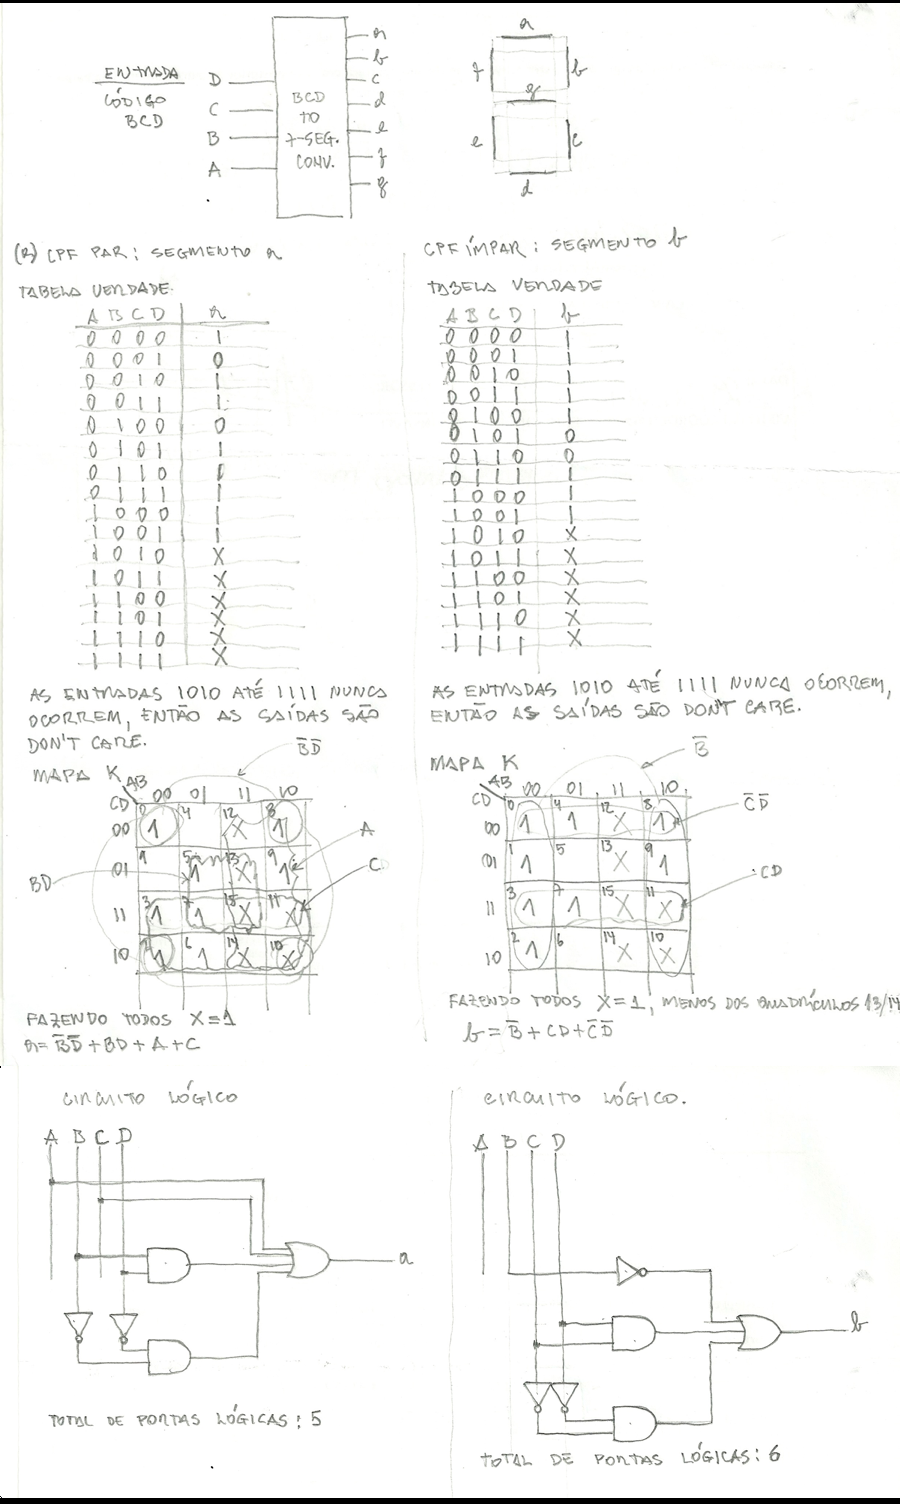 a
b
c
d
e
f
g
ENTRADA
CÓDIGO
BCD
D
C
B
A
BCD
TO
7-SEG.
CONV.
a
f b
g
e c
d
(B) CPF PAR: SEGMENTO a
TABELA VERDADE:
A B C D a
0 0 0 0 1
0 0 0 1 0
0 0 1 0 1
0 0 1 1 1
0 1 0 0 0
0 1 0 1 1
0 1 1 0 0
0 1 1 1 1
1 0 0 0 1
1 0 0 1 1
1 0 1 0 X
1 0 1 1 X
1 1 0 0 X
1 1 0 1 X
1 1 1 0 X
1 1 1 1 X
AS ENTRADAS 1010 ATÉ 1111 NUNCA
OCORREM, ENTÃO AS SAÍDAS SÃO
DON'T CARE.
MAPA K
B̅D̅
AB
CD
00 01 11 10
00 0 1 4 12 X 8 1
01 1 5 1 13 X 9 1
11 3 1 7 1 15 X 11 X
10 2 1 6 1 14 X 10 X
A
BD
C
FAZENDO TODOS X=1
a= B̅D̅+BD+A+C
CIRCUITO LÓGICO
A B C D
a
TOTAL DE PORTAS LÓGICAS: 5
CPF ÍMPAR: SEGMENTO b
TABELA VERDADE
A B C D b
0 0 0 0 1
0 0 0 1 1
0 0 1 0 1
0 0 1 1 1
0 1 0 0 1
0 1 0 1 0
0 1 1 0 0
0 1 1 1 1
1 0 0 0 1
1 0 0 1 1
1 0 1 0 X
1 0 1 1 X
1 1 0 0 X
1 1 0 1 X
1 1 1 0 X
1 1 1 1 X
AS ENTRADAS 1010 ATÉ 1111 NUNCA OCORREM,
ENTÃO AS SAÍDAS SÃO DON'T CARE.
MAPA K
B̅
AB
CD
00 01 11 10
00 0 1 4 1 12 X 8 1
01 1 1 5 13 X 9 1
11 3 1 7 1 15 X 11 X
10 2 1 6 14 X 10 X
C̅D̅
CD
FAZENDO TODOS X=1, MENOS DOS QUADRÍCULOS 13/14
b = B̅+CD+C̅D̅
CIRCUITO LÓGICO.
A B C D
b
TOTAL DE PORTAS LÓGICAS: 6